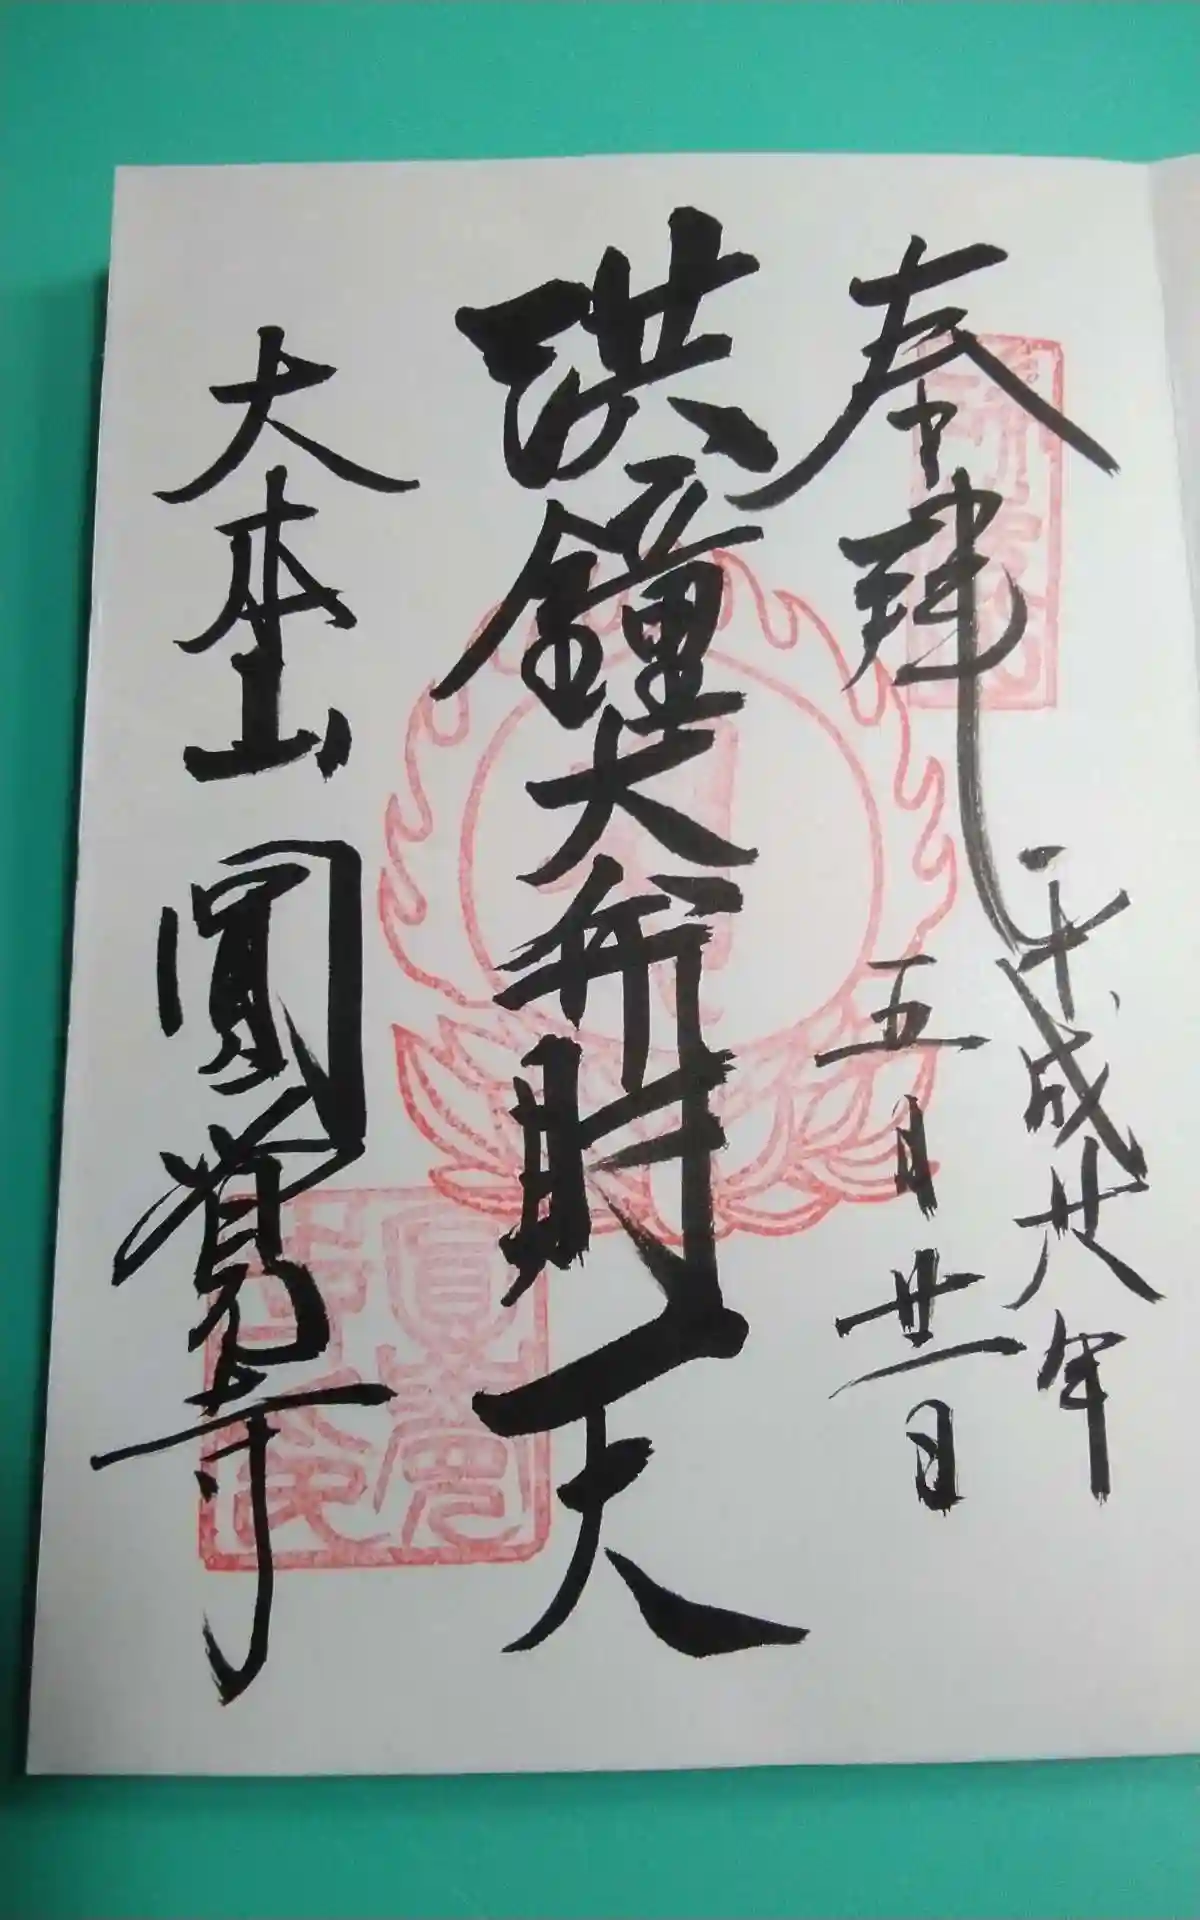 奉拝
平成廿八年
五月廿一日
洪鐘大弁財天
大本山圓覺寺